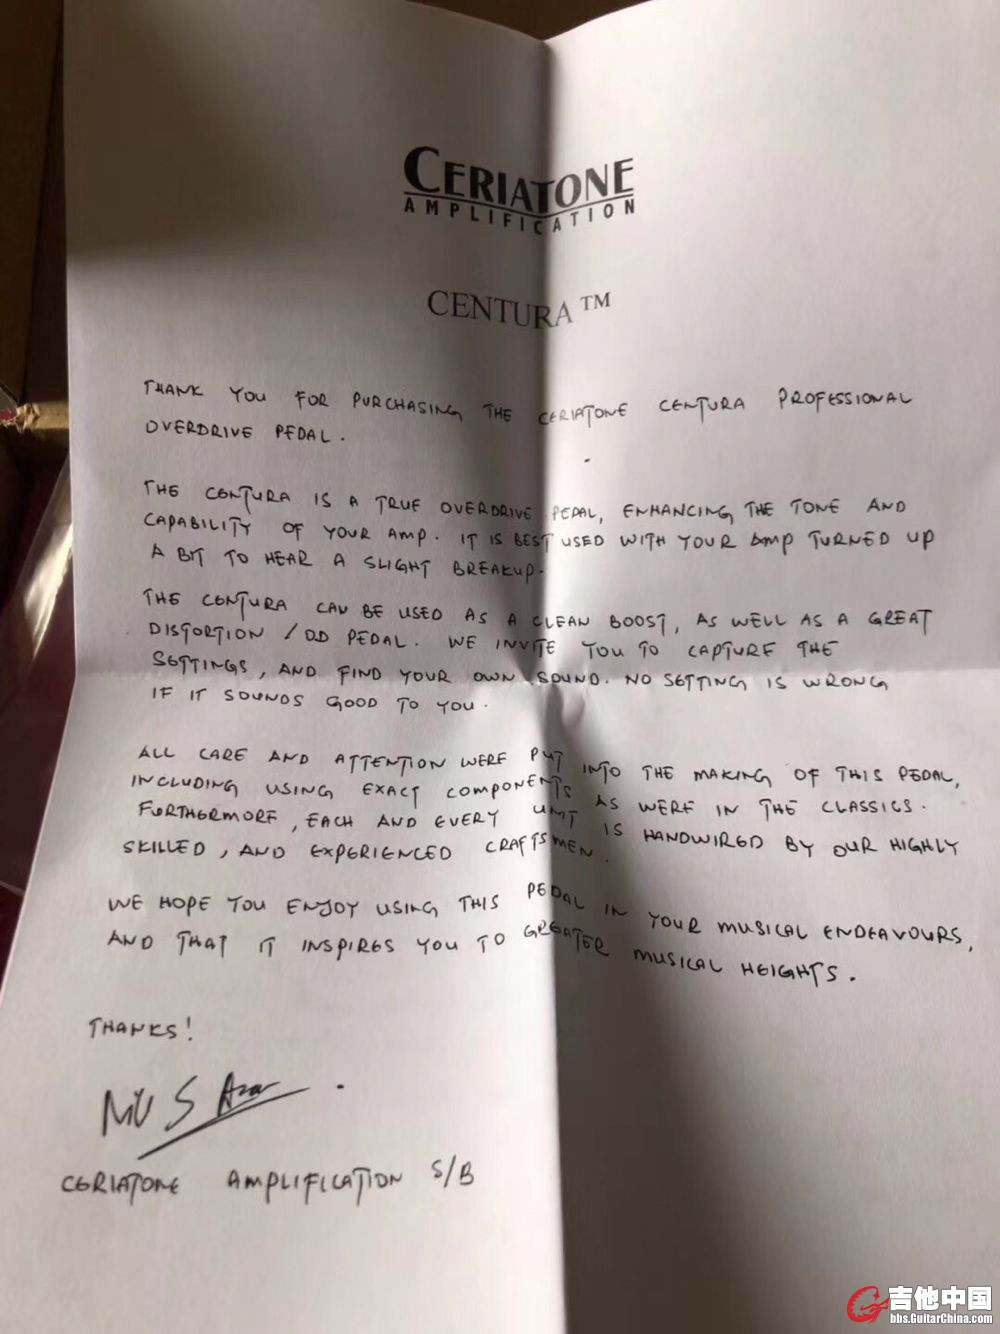 CERIATONE
AMPLIFICATION
CENTURA™
THANK YOU FOR PURCHASING THE CERIATONE CENTURA PROFESSIONAL
OVERDRIVE PEDAL.
THE CENTURA IS A TRUE OVERDRIVE PEDAL, ENHANCING THE TONE AND
CAPABILITY OF YOUR AMP. IT IS BEST USED WITH YOUR AMP TURNED UP
A BIT TO HEAR A SLIGHT BREAKUP.
THE CENTURA CAN BE USED AS A CLEAN BOOST, AS WELL AS A GREAT
DISTORTION / OD PEDAL. WE INVITE YOU TO CAPTURE THE
SETTINGS, AND FIND YOUR OWN SOUND. NO SETTING IS WRONG
IF IT SOUNDS GOOD TO YOU.
ALL CARE AND ATTENTION WERE PUT INTO THE MAKING OF THIS PEDAL,
INCLUDING USING EXACT COMPONENTS AS WERE IN THE CLASSICS.
FURTHERMORE, EACH AND EVERY UNIT IS HANDWIRED BY OUR HIGHLY
SKILLED, AND EXPERIENCED CRAFTSMEN.
WE HOPE YOU ENJOY USING THIS PEDAL IN YOUR MUSICAL ENDEAVOURS,
AND THAT IT INSPIRES YOU TO GREATER MUSICAL HEIGHTS.
THANKS!
CERIATONE AMPLIFICATION S/B
吉他中国
bbs.GuitarChina.com